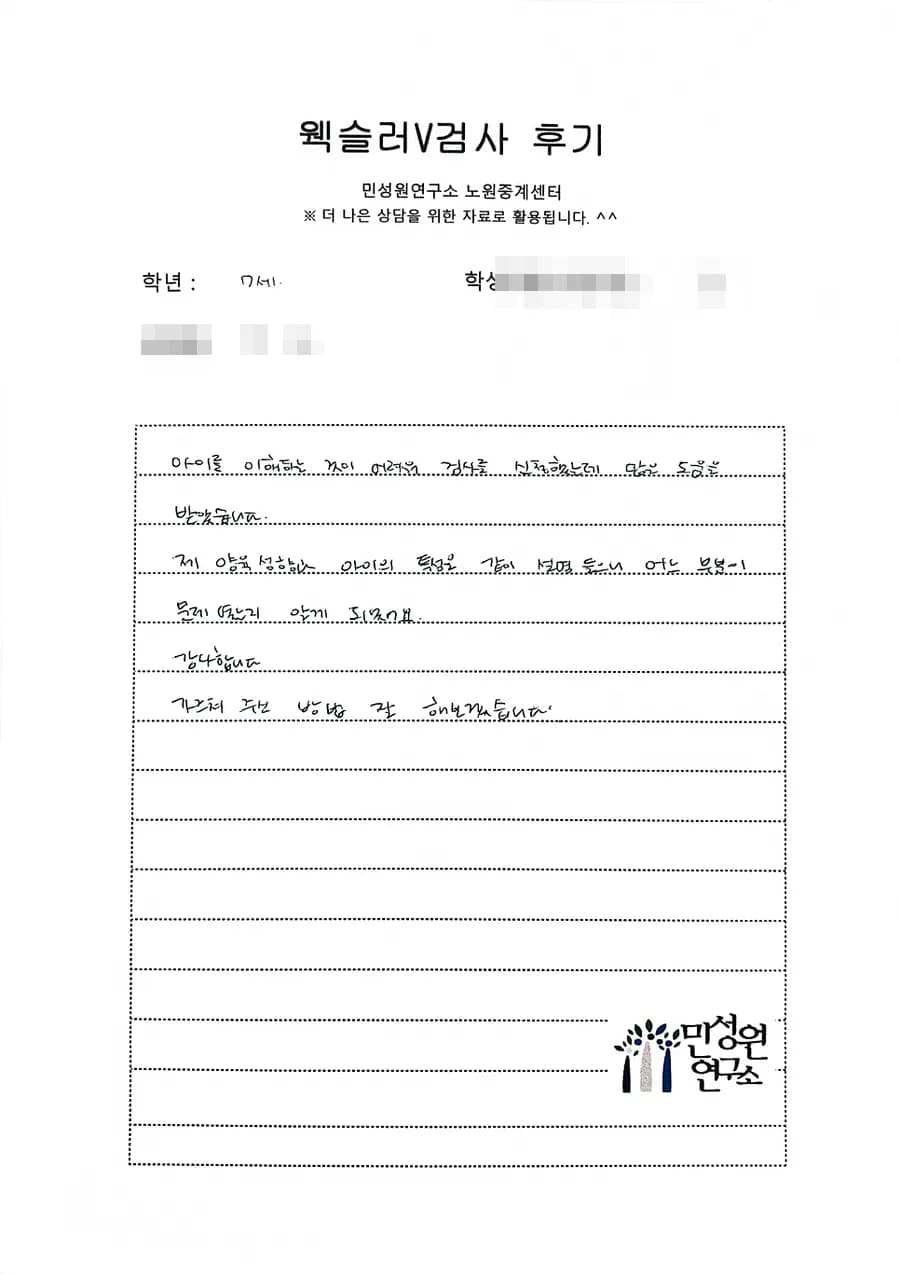 웩슬러V검사 후기
민성원연구소 노원중계센터
※ 더 나은 상담을 위한 자료로 활용됩니다. ^^
학년 : 7세.
아이를 이해하는 것이 어려워 검사를 신청했는데 많은 도움을
받았습니다.
제 양육성향과 아이의 특성을 같이 설명 들으니 어느 부분이
문제였는지 알게 되었어요.
감사합니다
가르쳐 주신 방법 잘 해보겠습니다.
민성원
연구소